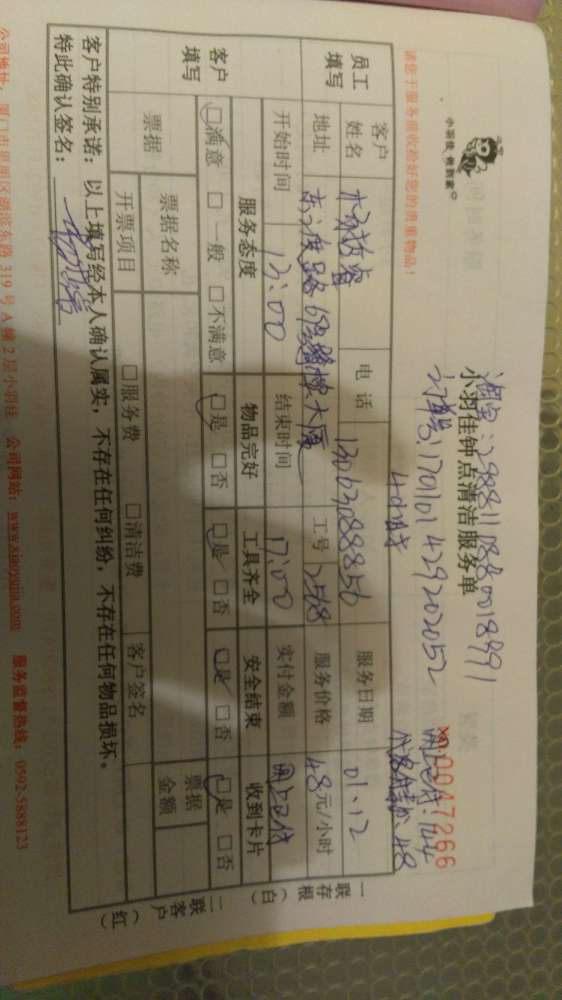 小羽佳 做到家
请您于服务前收验好您的贵重物品！
淘宝：2988110880018991
小羽佳钟点清洁服务单
订单号170101429202052
No 0047266
网上已付：144
48
员工填写
客户姓名
电话 13063088856
服务日期 01.12
地址
工号 2568
服务价格 48元/小时
开始时间 13:00
结束时间 17:00
实付金额 网上已付
客户填写
服务态度 物品完好 工具齐全 安全结束 收到卡片
□满意 □一般 □不满意 □是 □否 □是 □否 □是 □否 □是 □否
票据
票据名称
票据金额
开票项目
□服务费 □清洁费
客户签名
客户特别承诺：以上填写经本人确认属实，不存在任何纠纷，不存在任何物品损坏。
特此确认签名：
一联存根（白） 二联客户（红）
公司地址：厦门市思明区湖滨东路319号A幢2层小羽佳 公司网站：www.xiaoyujia.com 服务监督热线：0592-5888123